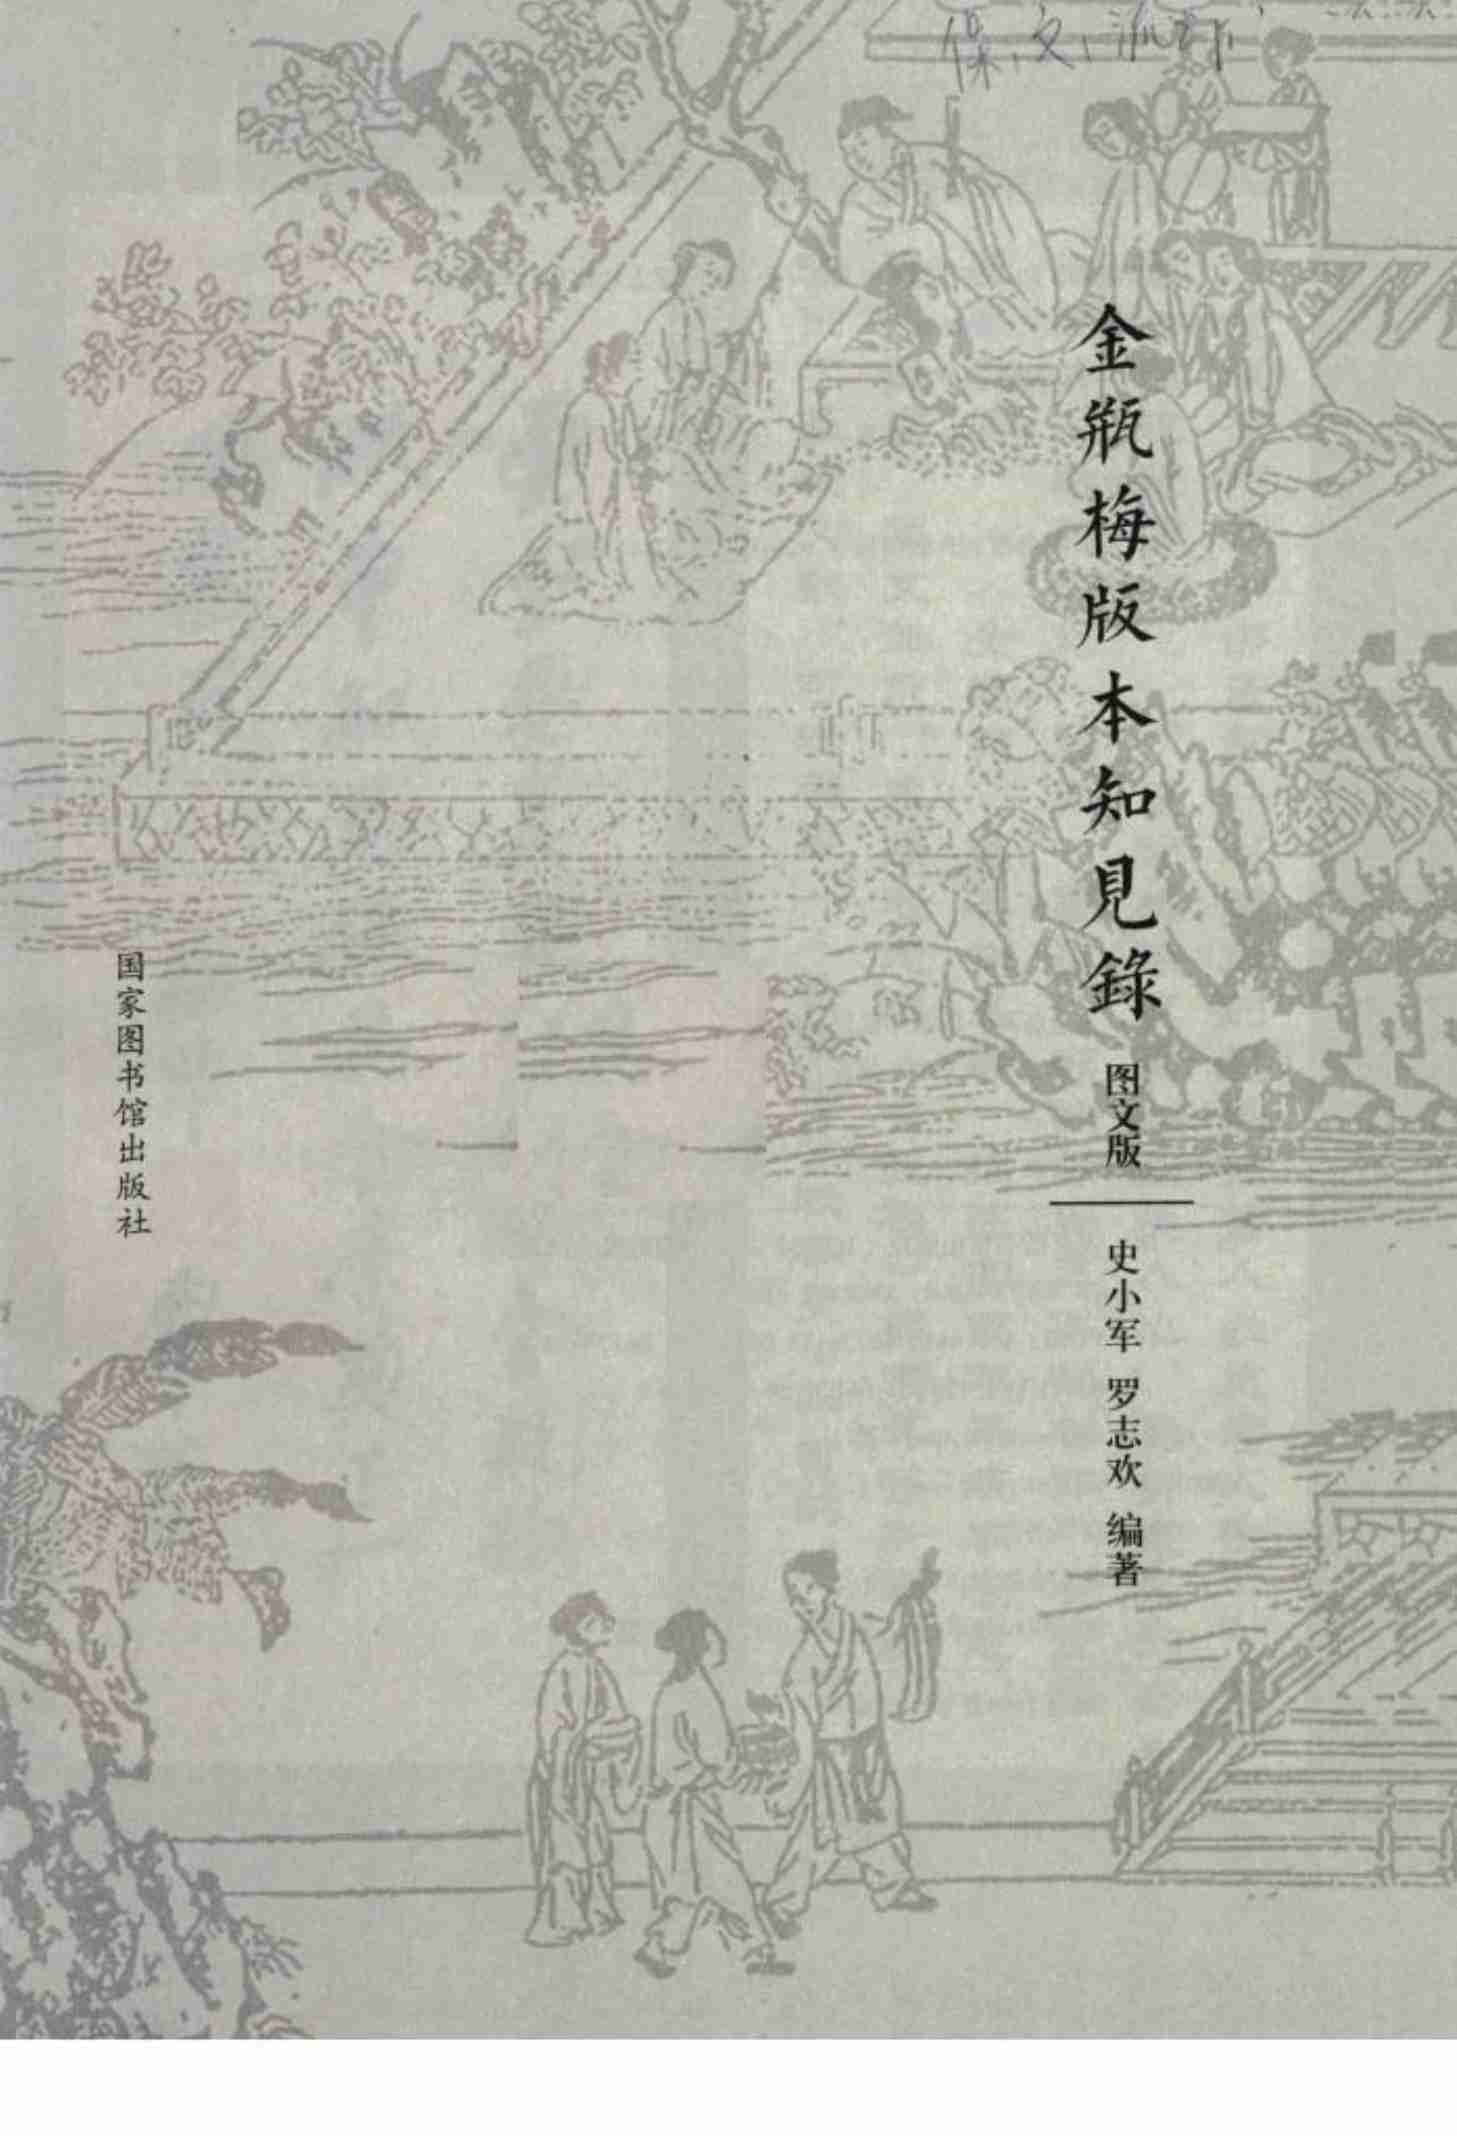 金瓶梅版本知見錄
图文版
史小军 罗志欢 编著
国家图书馆出版社